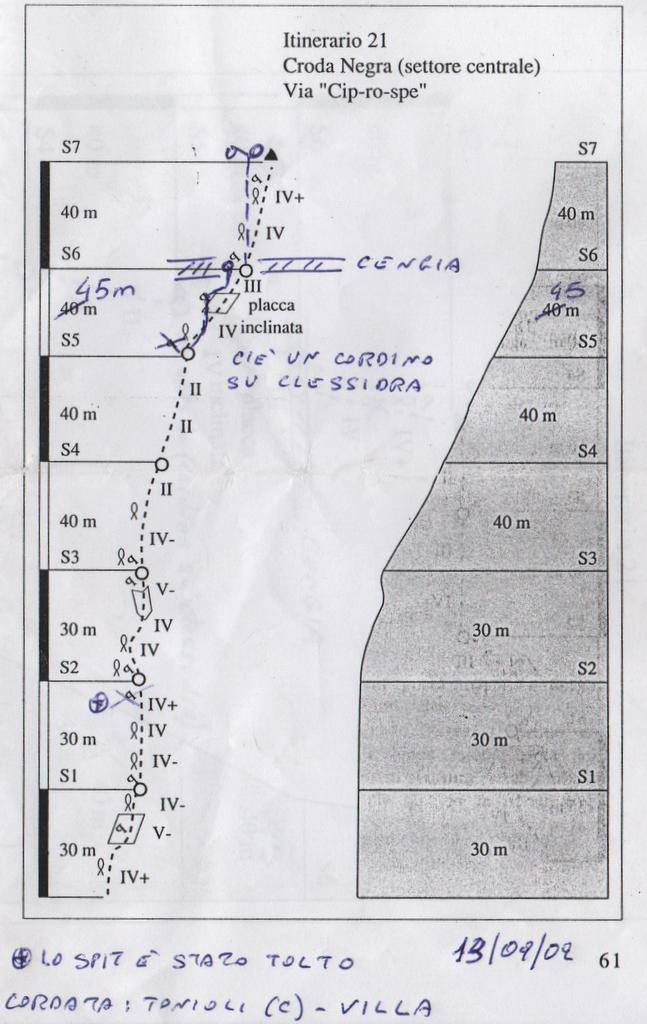 Itinerario 21
Croda Negra (settore centrale)
Via "Cip-ro-spe"
S7
S7
IV+
40 m
40 m
IV
S6
S6
CENGIA
III
45m
45
40 m
placca
40 m
IV inclinata
S5
S5
C'IÈ UN CORDINO
SU CLESSIDRA
II
40 m
II
40 m
S4
S4
II
40 m
IV-
40 m
S3
S3
V-
30 m
IV
30 m
IV
S2
S2
IV+
30 m
IV
30 m
IV-
S1
S1
IV-
V-
30 m
30 m
IV+
LO SPIT È STATO TOLTO
13/02/02
61
CORDATA: TONIOLI (C) - VILLA